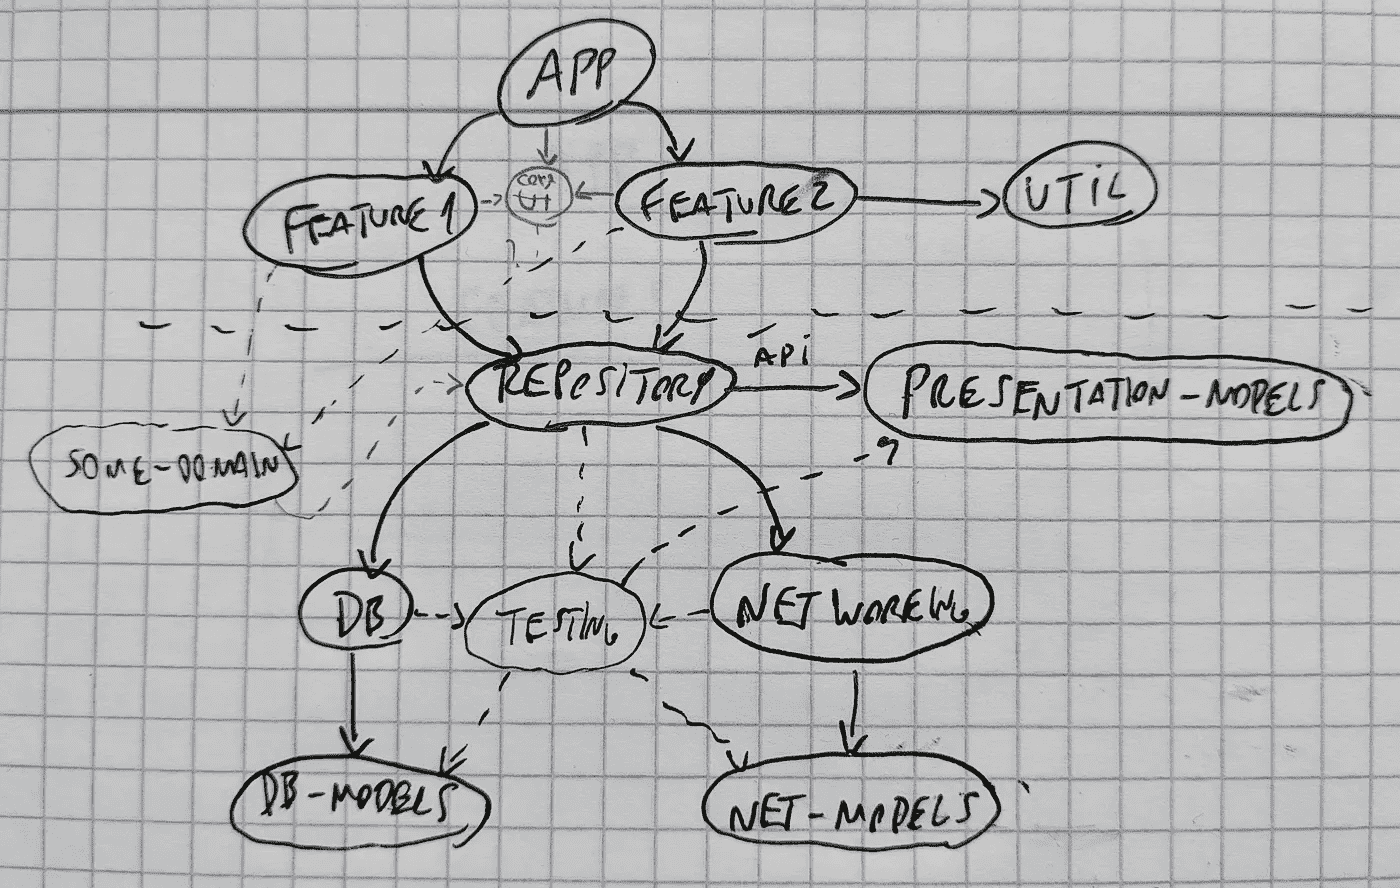 APP
core
UI
FEATURE 1
FEATURE 2
UTIL
?
API
REPOSITORY
PRESENTATION-MODELS
SOME-DOMAIN
DB
TESTING
NETWORKING
DB-MODELS
NET-MODELS